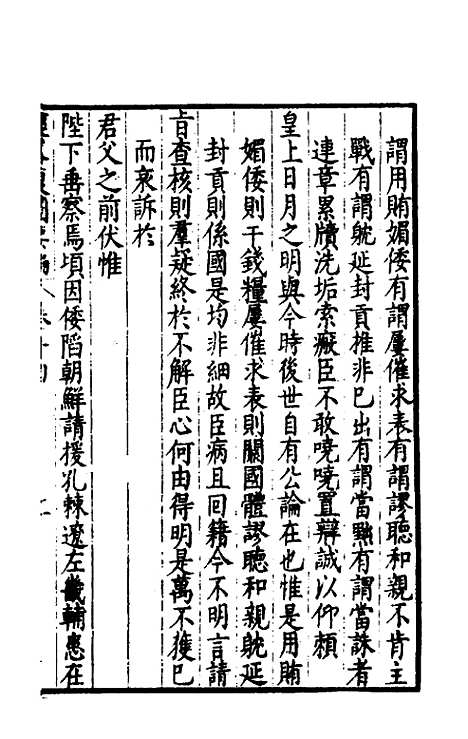 謂用賄媚倭有謂屢催求表有謂謬聽和親不肯主
戰有謂躭延封貢推非已出有謂當黜有謂當誅者
連章累牘洗垢索瘢臣不敢嘵嘵置辯誠以仰賴
皇上日月之明與今時後世自有公論在也惟是用賄
媚倭則干錢糧屢催求表則關國體謬聽和親躭延
封貢則係國是均非細故臣病且回籍今不明言請
旨查核則羣疑終於不解臣心何由得明是萬不獲已
而哀訴於
君父之前伏惟
陛下垂察焉頃因倭陷朝鮮請援孔棘遼左畿輔患在
經略復國要編 卷十四